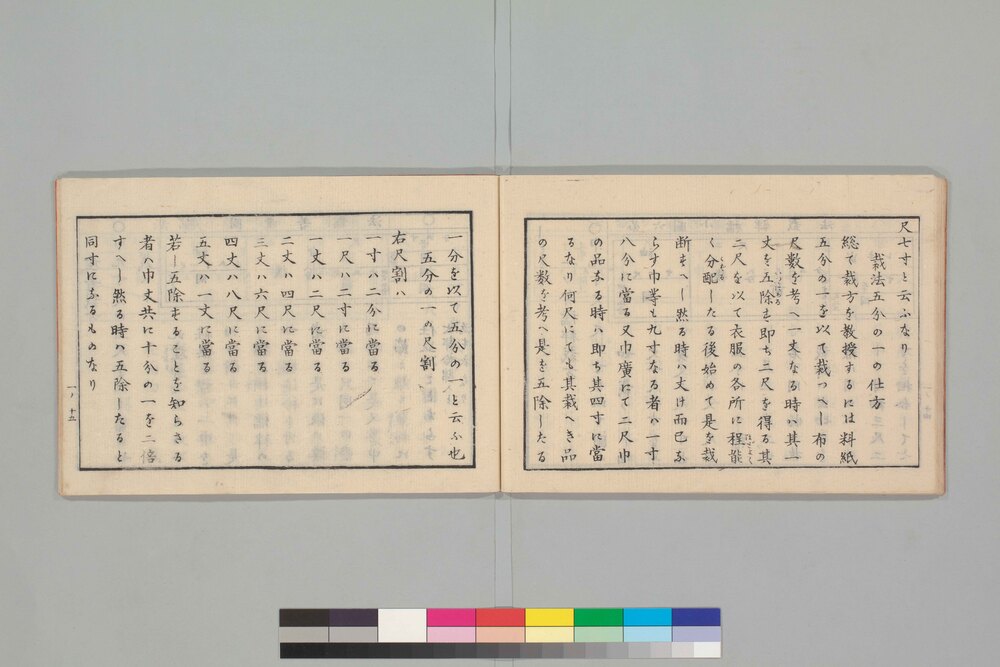 尺七寸と云ふなり
裁法五分の一の仕方
總て裁方を教授するには料紙
五分の一を以て裁つへし布の
尺数を考へ一丈なる時ハ其一
丈を五除し即ち二尺を得る其
二尺を以て衣服の各所に程能
く分配したる後始めて是を裁
断すへし然る時ハ丈け而已な
らす巾等も九寸なる者ハ一寸
八分に當る又巾廣にて二尺巾
の品なる時ハ即ち其四寸に當
るなり何尺にても其裁へき品
の尺数を考へ是を五除したる
一ノ十四
一分を以て五分の一と云ふ也
五分の一の尺割
右尺割ハ
一寸ハ二分に當る
一尺ハ二寸に當る
一丈ハ二尺に當る
二丈ハ四尺に當る
三丈ハ六尺に當る
四丈ハ八尺に當る
五丈ハ一丈に當る
若し五除することを知らさる
者ハ巾丈共に十分の一を二倍
すへし然る時ハ五除したると
同寸になるものなり
一ノ十五